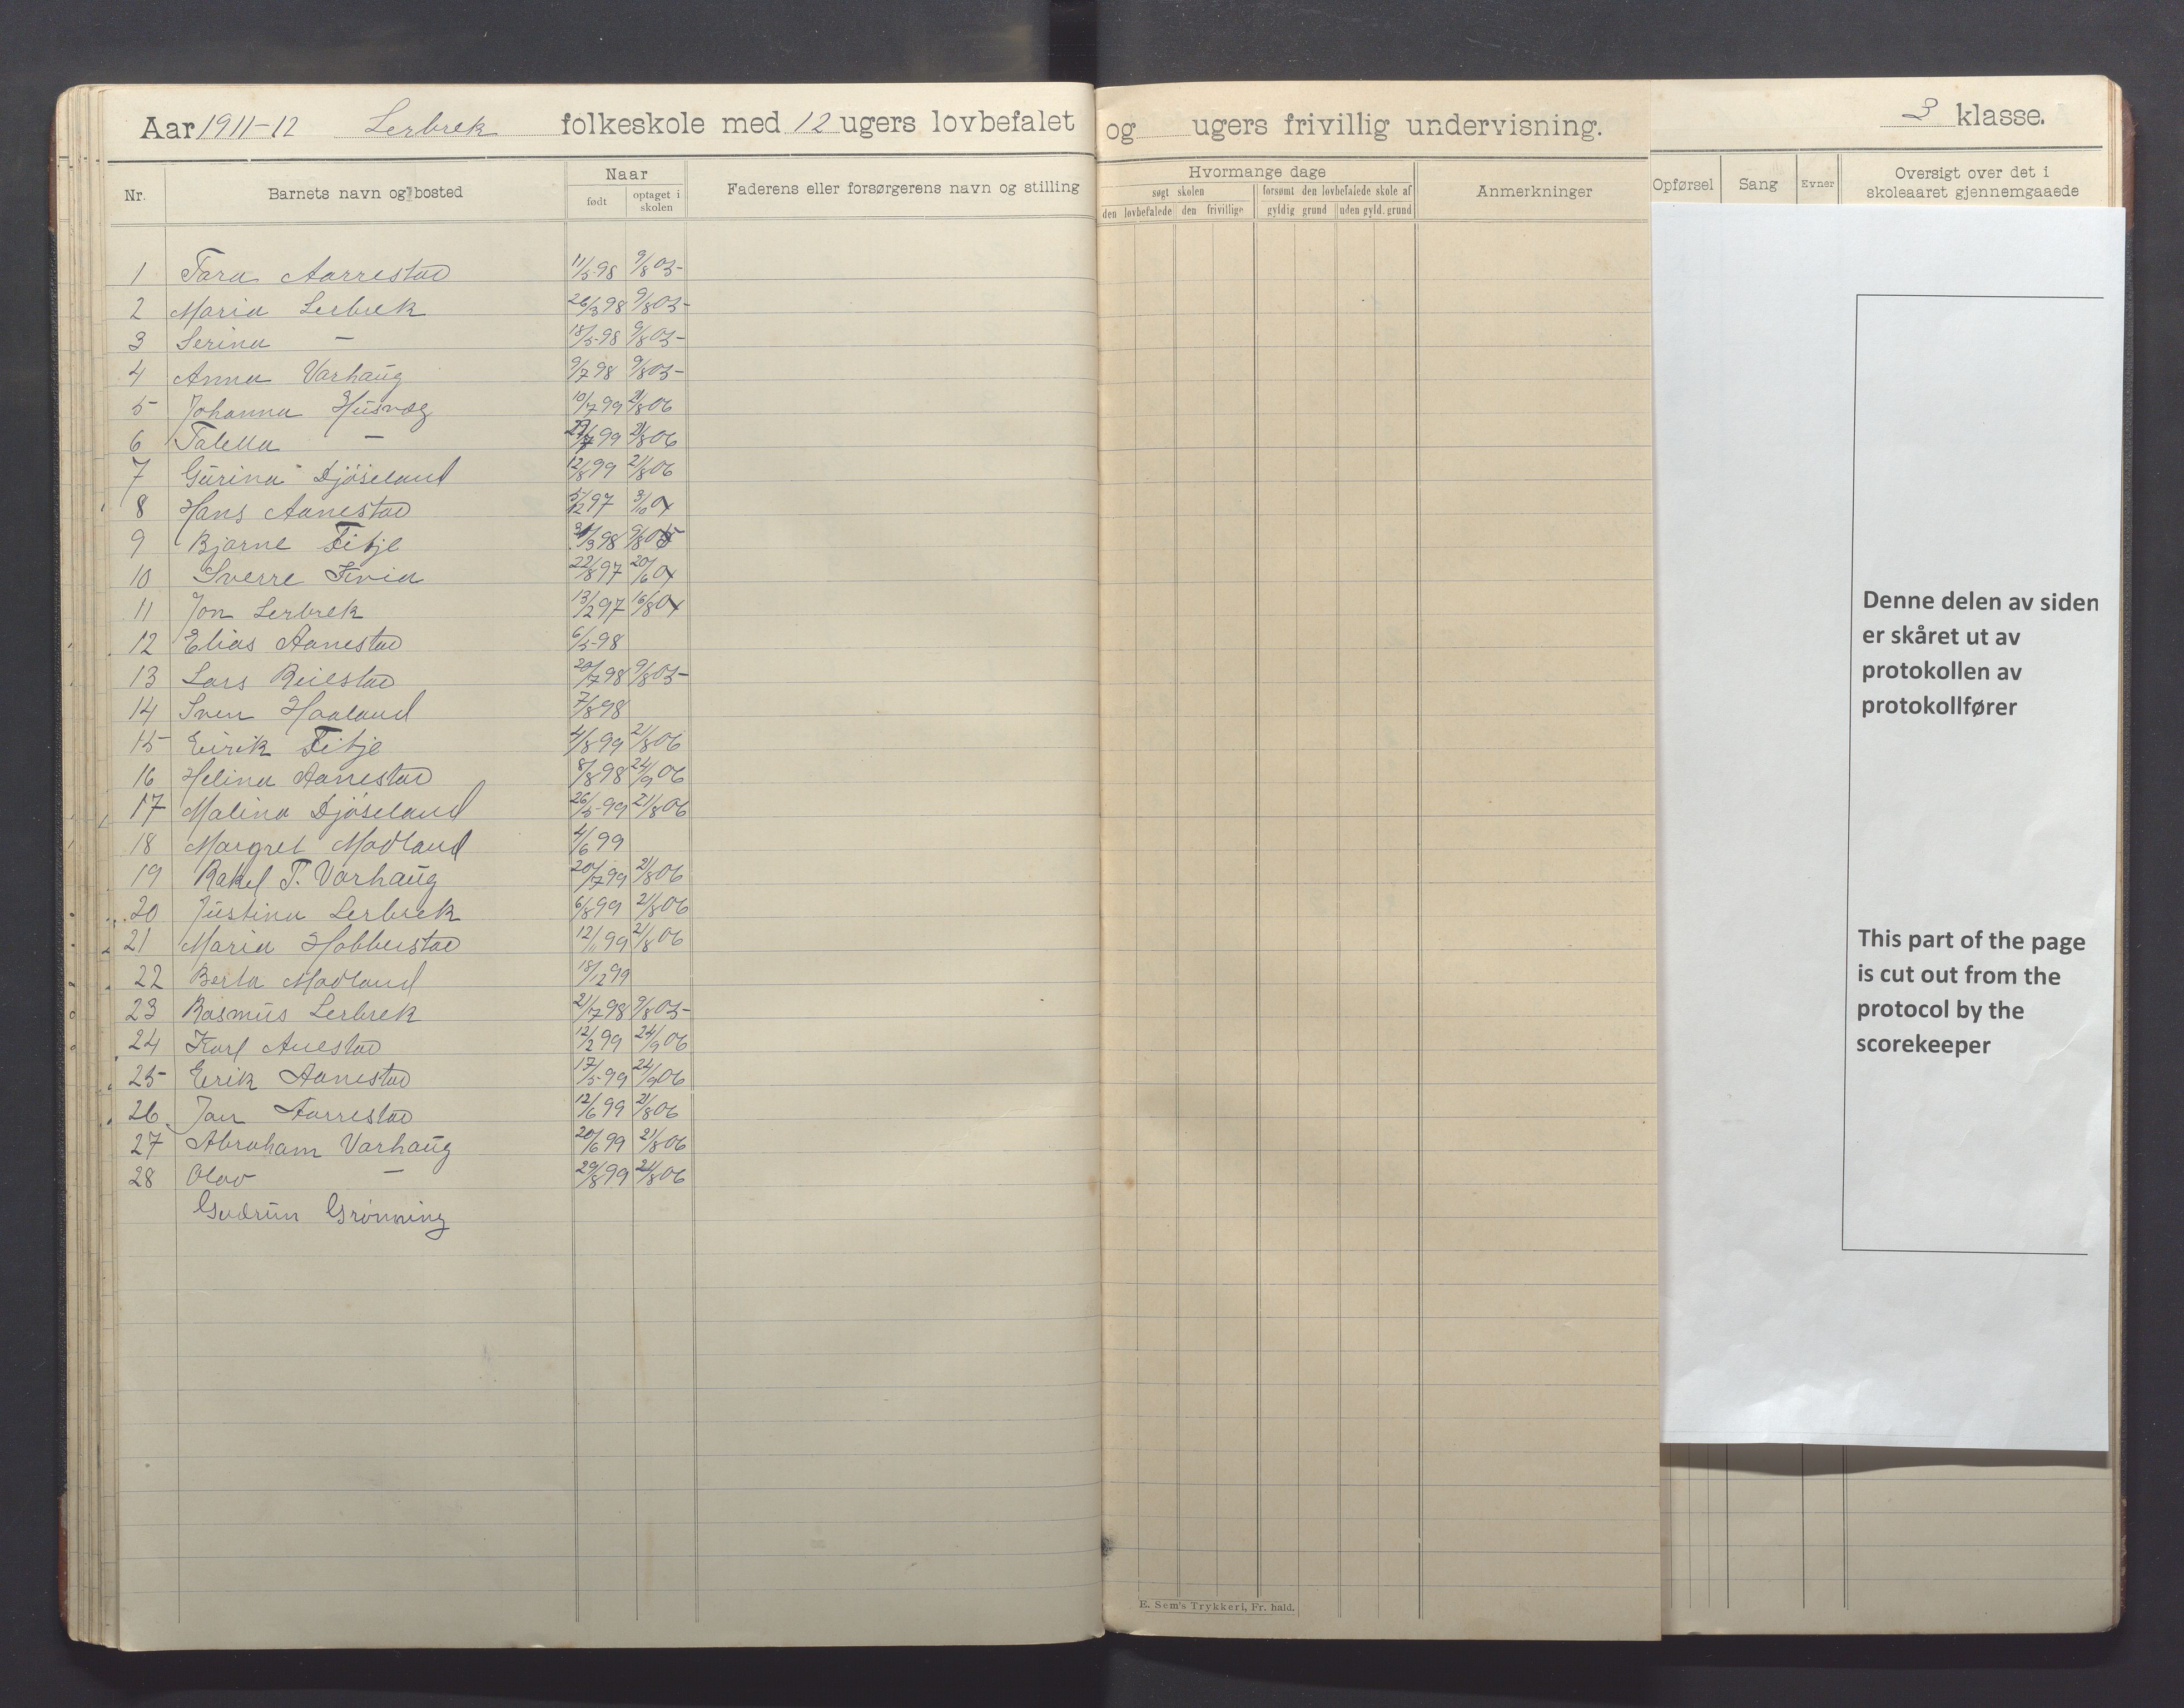 Aar 1911-12 Lerbrek folkeskole med 12 ugers lovbefalet og ugers frivillig undervisning. 3 klasse.
Nr. Barnets navn og bosted Naar født optaget i skolen Faderens eller forsørgerens navn og stilling
Hvormange dage
søgt skolen forsømt den lovbefalede skole af
den lovbefalede den frivillige gyldig grund uden gyld. grund
Anmerkninger
Opførsel Sang Evner Oversigt over det i skoleaaret gjennemgaaede
1 Tora Aarrestad 11/5-98 9/8 05-
2 Maria Lerbrek 26/3 98 9/8 05-
3 Serina — 18/5-98 9/8 05-
4 Anna Varhaug 9/7 98 9/8 05-
5 Johanna Husvæg 10/7 99 21/8 06
6 Taletta — 99 21/8 06
7 Gurina Djöseland 12/8 99 21/8 06
8 Hans Aanestad 5/12 97 3/10 04
9 Bjarne Fitje 98 9/8 05
10 Sverre Kvia 22/8 97 20/6 04
11 Jon Lerbrek 13/2 97 16/8 04
12 Elias Aanestad 6/5-98
13 Lars Reiestad 20/7 98 9/8 05-
14 Sven Haaland 7/8 98
15 Eirik Fitje 4/8 99 21/8 06
16 Helina Aanestad 8/8 98 24/9 06
17 Malina Djöseland 26/5-99 21/8 06
18 Margret Madland 4/6 99
19 Rakel T. Varhaug 20/7 99 21/8 06
20 Justina Lerbrek 6/8 99 21/8 06
21 Maria Hobberstad 12/1 99 21/8 06
22 Berta Madland 18/12 99
23 Rasmus Lerbrek 21/7 98 9/8 05-
24 Karl Auestad 12/2 99 24/9 06
25 Erik Aanestad 17/5-99 24/9 06
26 Jan Aarrestad 12/6 99 21/8 06
27 Abraham Varhaug 20/6 99 21/8 06
28 Olav — 29/8 99 21/8 06
Gudrun Grönning
E. Sem's Trykkeri, Fr. hald.
Denne delen av siden
er skåret ut av
protokollen av
protokollfører
This part of the page
is cut out from the
protocol by the
scorekeeper